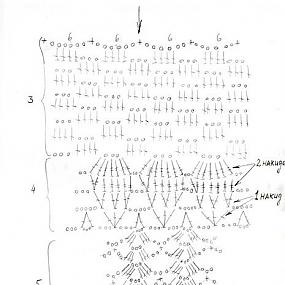 6 6 6 6
3
2 накида
4
1 накид
5